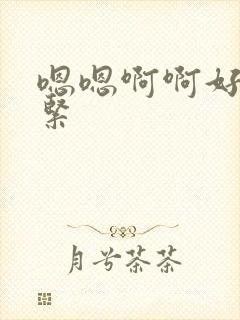 嗯嗯啊啊好
緊
月兮茶茶